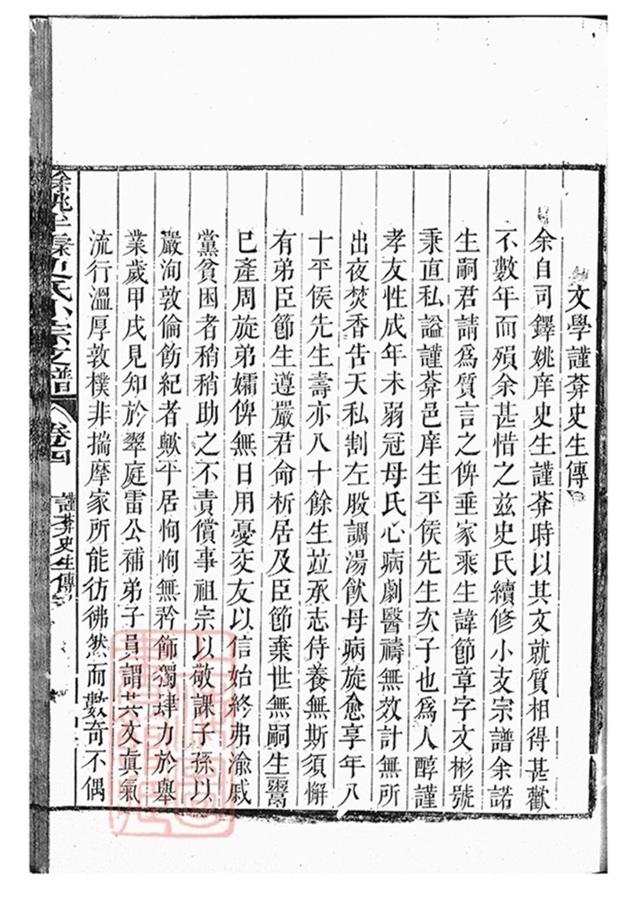 文學謹葊史生傳
余自司鐸姚庠史生謹葊時以其文就質相得甚歡
不數年而殞余甚惜之茲史氏續修小支宗譜余諾
生嗣君請爲質言之俾垂家乘生諱節章字文彬號
秉直私謚謹葊邑庠生平侯先生次子也爲人醇謹
孝友性成年未弱冠母氏心病劇醫禱無效計無所
出夜焚香告天私割左股調湯飲母病旋愈享年八
十平侯先生壽亦八十餘生竝承志侍養無斯須懈
有弟臣節生遵嚴君命析居及臣節棄世無嗣生鬻
已產周旋弟孀俾無日用憂交友以信始終弗渝戚
黨貧困者稍稍助之不責償事祖宗以敬課子孫以
嚴洵敦倫飭紀者歟平居恂恂無矜飾獨肆力於舉
業歲甲戌見知於翠庭雷公補弟子員謂其文真氣
流行溫厚敦樸非揣摩家所能彷彿然而數奇不偶
餘姚半霖史氏小宗支譜 卷四 謹葊史生傳